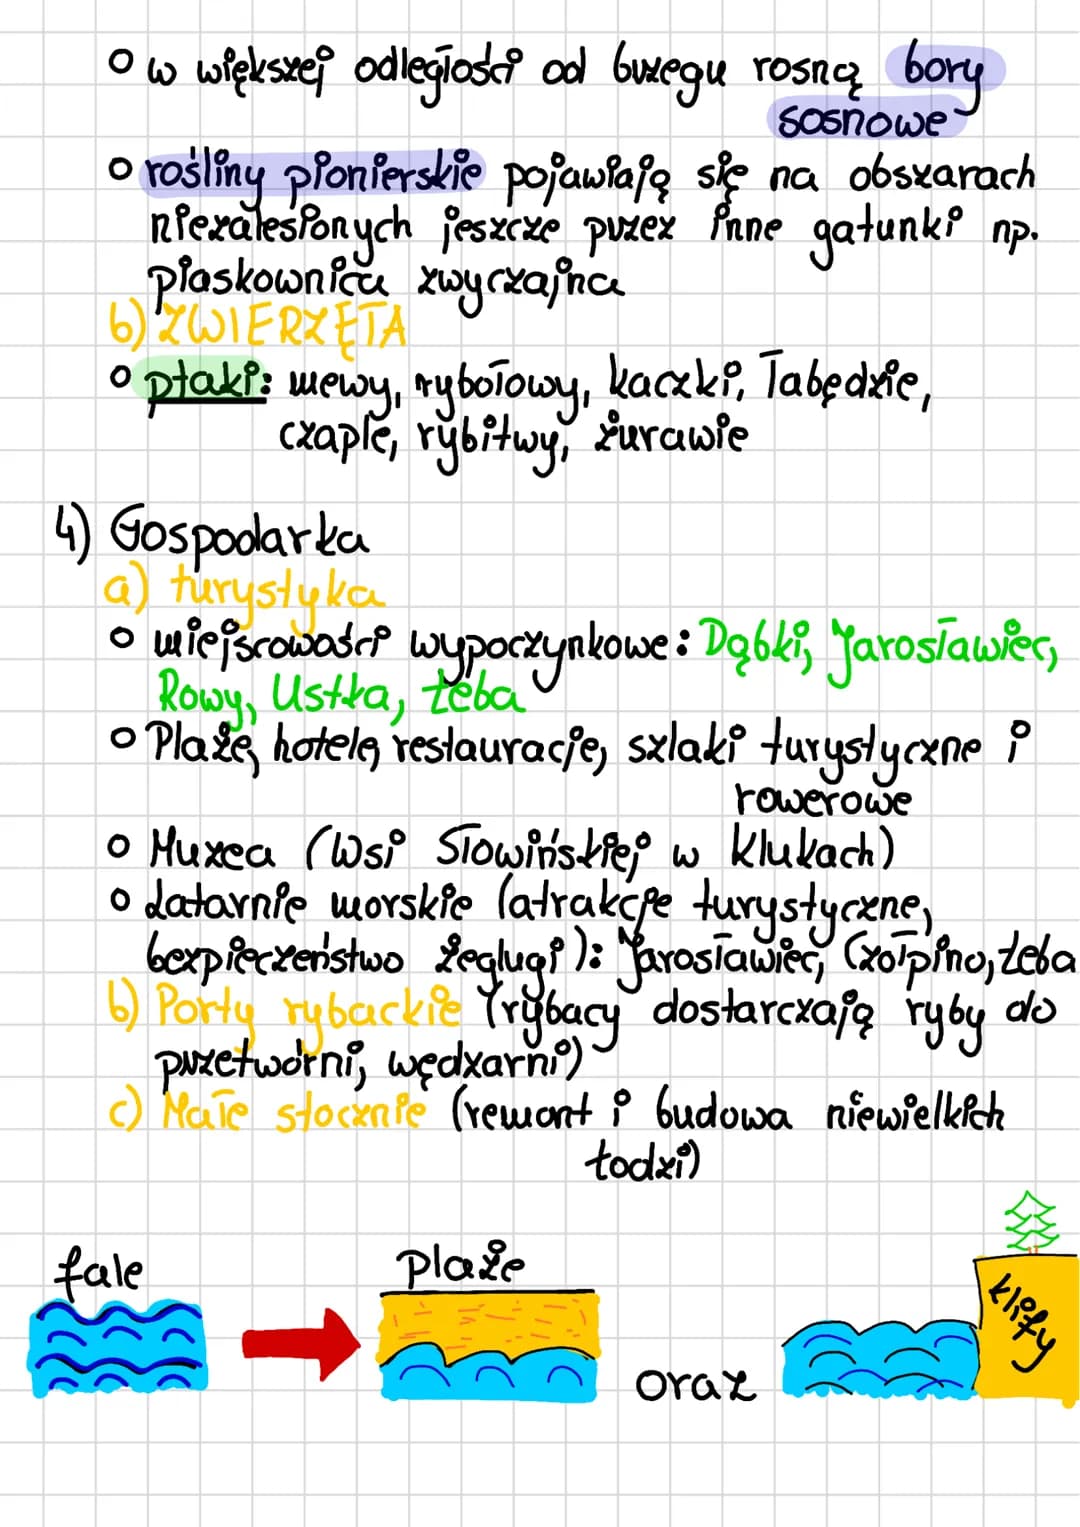 o w większej odległości od brzegu rosną bory
sosnowe
o rośliny pionierskie pojawiają się na obszarach
niezalesionych jeszcze przez inne gatunki np.
piaskownica zwyczajna
b) ZWIERZĘTA
o ptaki: mewy, rybołowy, kaczki, łabędzie,
czaple, rybitwy, żurawie
4) Gospodarka
a) turystyka
o miejscowości wypoczynkowe: Dąbki, Jarosławiec,
Rowy, Ustka, Łeba
o Plaże, hotele, restauracje, szlaki turystyczne i
rowerowe
o Muzea (Wsi Słowińskiej w Klukach)
o Latarnie morskie (atrakcje turystyczne,
bezpieczeństwo żeglugi): Jarosławiec, Czołpino, Łeba
b) Porty rybackie (rybacy dostarczają ryby do
przetwórni, wędzarni)
c) Małe stocznie (remont i budowa niewielkich
łodzi)
fale
plaże
oraz
klify